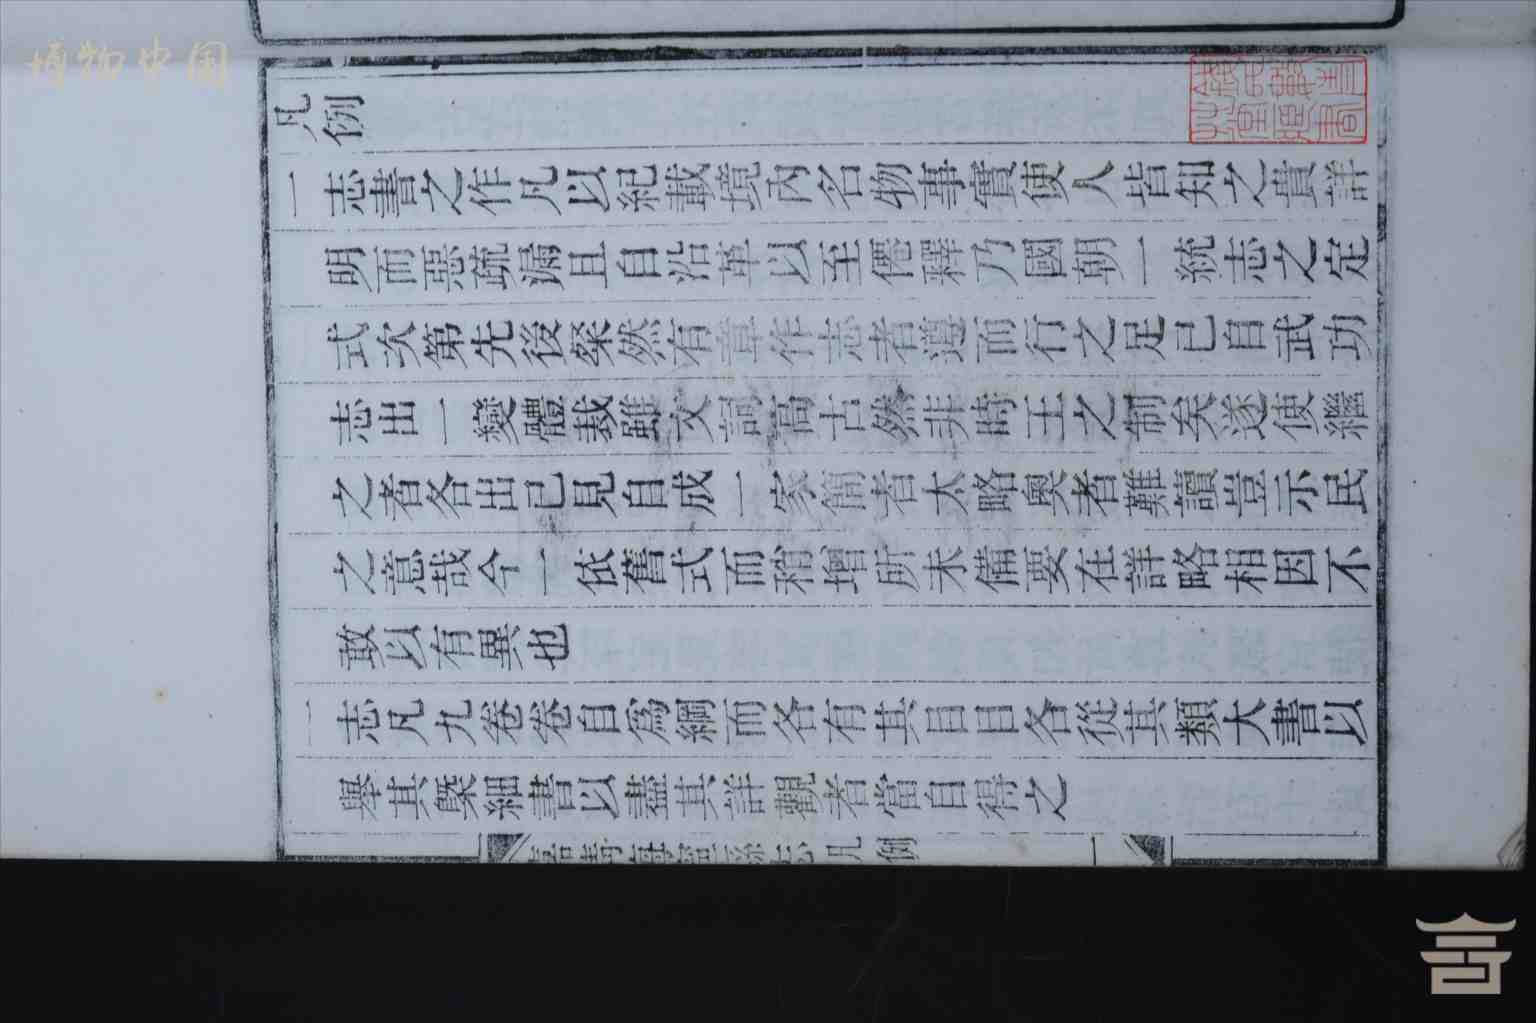 博物中国
凡例
一志書之作凡以紀載境內名物事實使人皆知之貴詳
明而惡疏漏且自沿革以至僊釋乃國朝一統志之定
式次第先後粲然有章作志者遵而行之足已自武功
志出一變體裁雖文詞高古然非時王之制矣遂使繼
之者各出已見自成一家簡者太略奧者難讀豈示民
之意哉今一依舊式而稍增所未備要在詳略相因不
敢以有異也
一志凡九卷卷自爲綱而各有其目目各從其類大書以
舉其槩細書以盡其詳觀者當自得之
志凡例
一